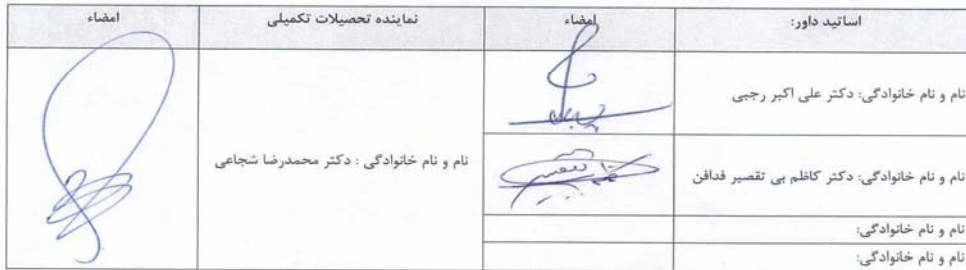 اساتید داور: امضاء نماینده تحصیلات تکمیلی امضاء
نام و نام خانوادگی: دکتر علی اکبر رجبی
نام و نام خانوادگی : دکتر محمدرضا شجاعی
نام و نام خانوادگی: دکتر کاظم بی تقصیر فدافن
نام و نام خانوادگی:
نام و نام خانوادگی: